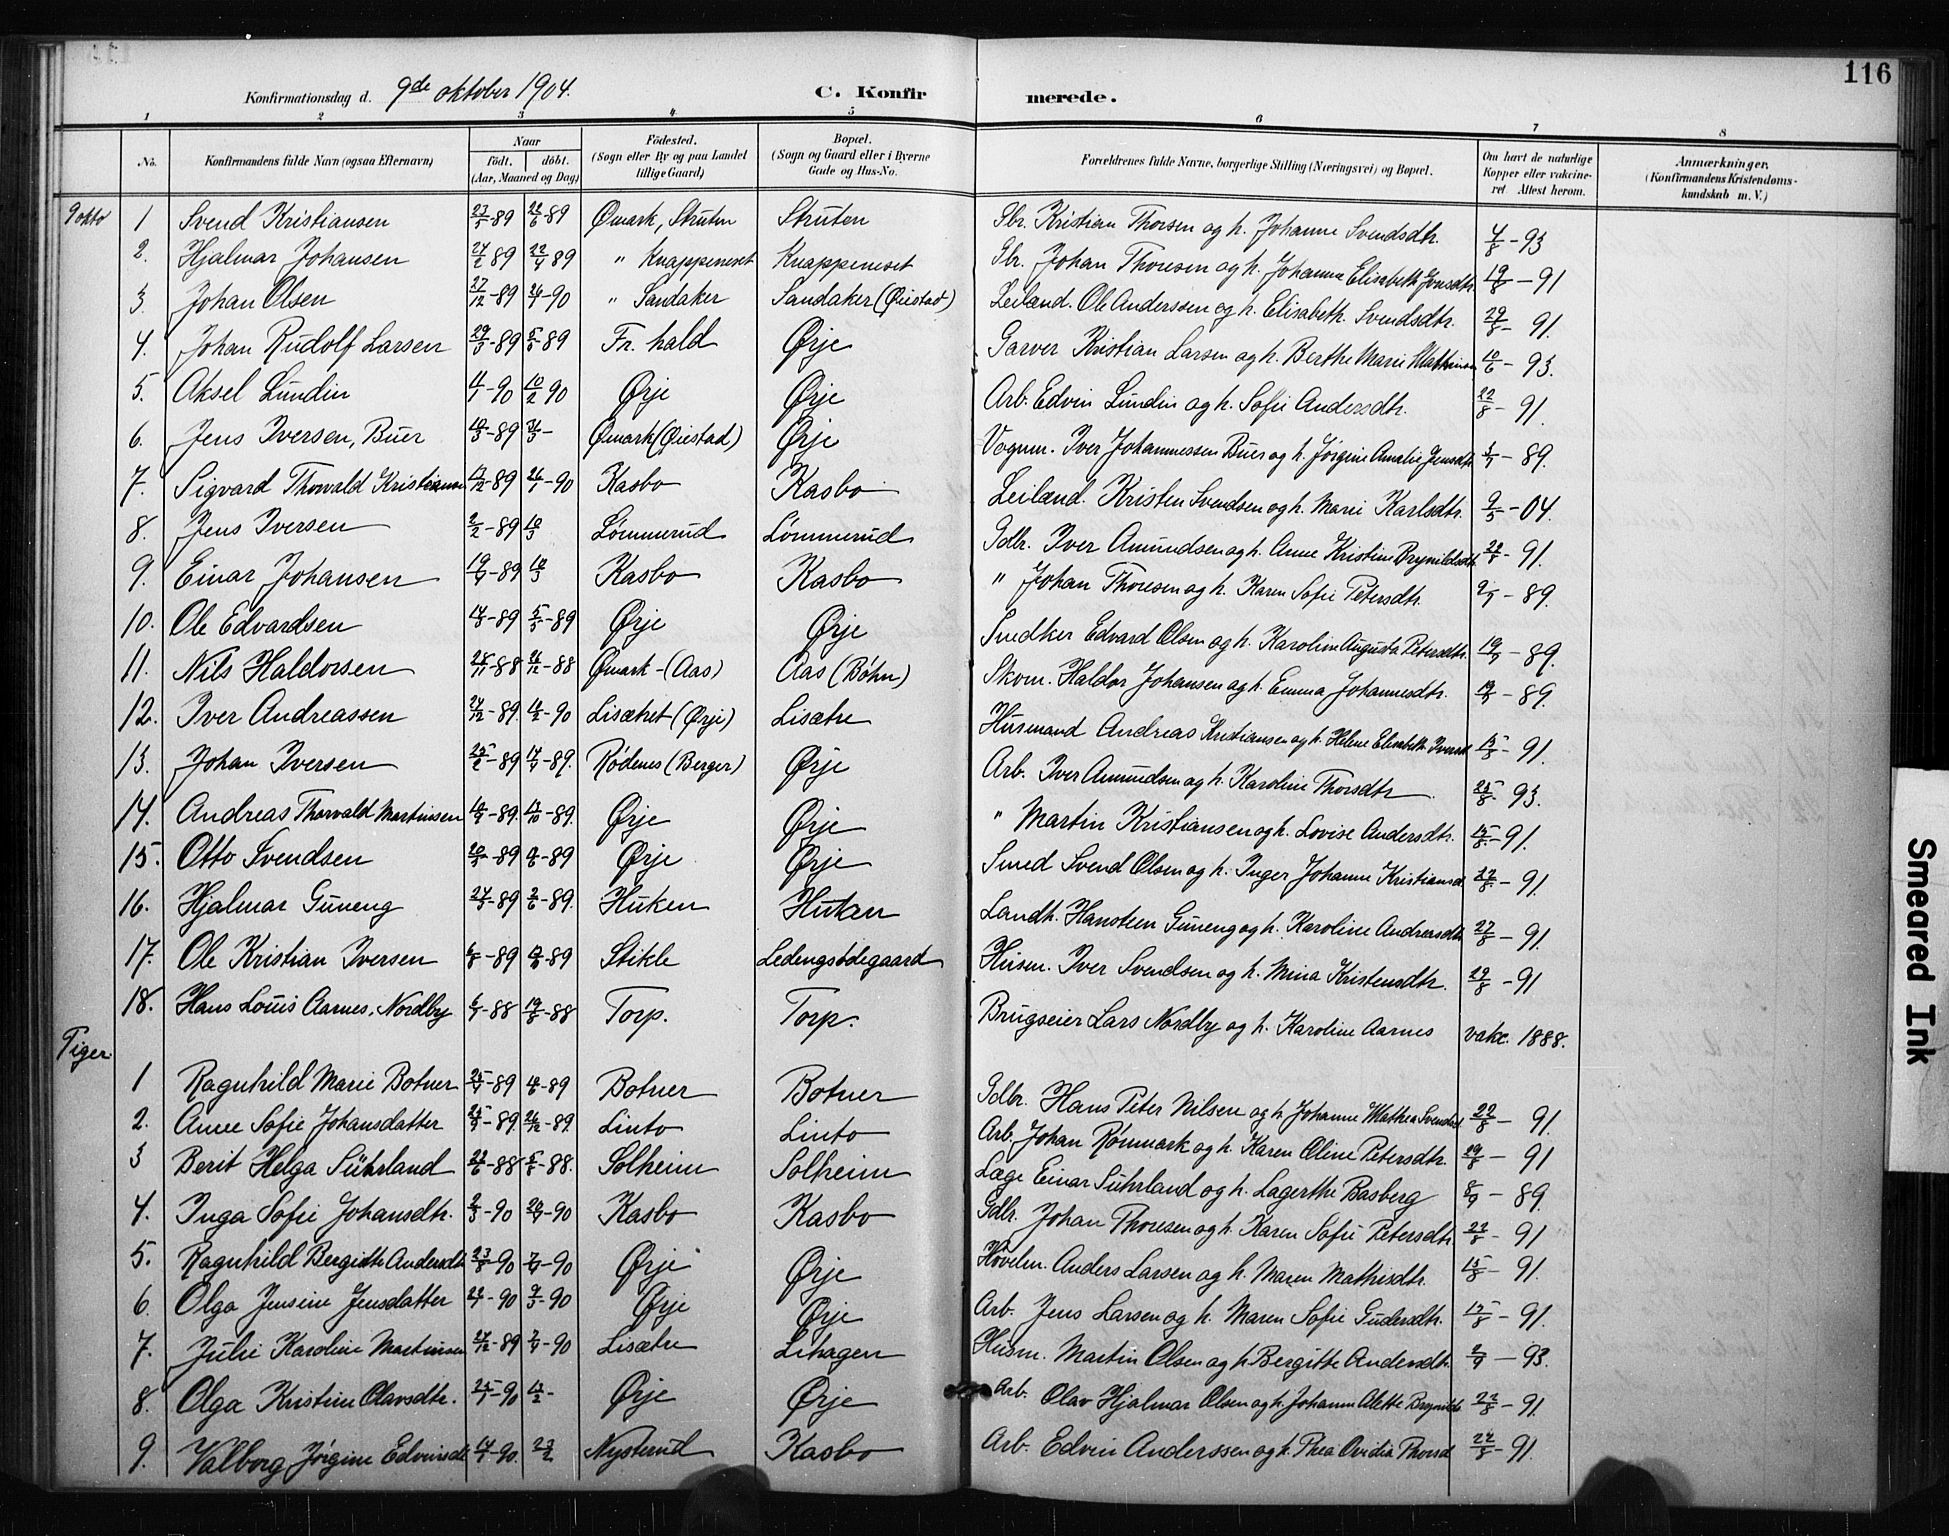 116
Konfirmationsdag d. 9de oktober 1904.
C. Konfirmerede.
1 2 3 4 5 6 7 8
No. Konfirmandens fulde Navn (ogsaa Efternavn) Naar født. døbt. (Aar, Maaned og Dag) Fødested. (Sogn eller By og paa Landet tillige Gaard) Bopæl. (Sogn og Gaard eller i Byerne Gade og Hus-No. Forældrenes fulde Navne, borgerlige Stilling (Næringsvei) og Bopæl. Om havt de naturlige Kopper eller vakcineret. Attest herom. Anmærkninger. (Konfirmandens Kristendomskundskab m. V.)
9 okto 1 Svend Kristiansen 23/5-89 22/6-89 Ømark, Struten Struten Gbr. Kristian Thorsen og h. Johanne Svendsdtr. 4/8-93
2. Hjalmar Johansen 24/2 89 22/4 89 " Knappeneset Knappeneset Gbr. Johan Thoresen og h. Johanne Elisabeth Jonsdtr. 19/8-91
3. Johan Olsen 27/12-89 26/1-90 " Sandaker Sandaker (Øiestad) Leiland. Ole Anderssen og h. Elisabeth Svendsdtr. 29/8-91.
4. Johan Rudolf Larsen 29/3-89 5/6-89 Fr. hald Ørje Garver Kristian Larsen og h. Berthe Marie 10/6-93.
5. Aksel Lundin 4/1-90 10/2 90 Ørje Ørje Arb. Edvin Lundin og h. Sofie Andersdtr. 22/8-91.
6. Jens Iversen, Buer 10/3-89 31/3- Ømark (Øiestad) Ørje Vognm. Iver Johannessen Buer og h. Jørgine Amalie Jensdtr -89.
7. Sigvard Thorvald Kristiansen 13/12-89 26/1-90 Kasbo Kasbo Leilænd. Kristen Svendsen og h. Marie Karlsdtr. 9/5-04.
8. Jens Iversen 2/2-89 10/3 Lømmerud Lømmerud Gdbr. Iver Amundsen og h. Anne Kristine Brynildsdtr 22/8-91.
9. Einar Johansen -89 Kasbo Kasbo " Johan Thoresen og h. Karen Sofie Petersdtr. -89.
10. Ole Edvardsen -89 5/5-89 Ørje Ørje Snedker Edvard Olsen og h. Karoline Augusta Petersdtr. -89.
11. Nils Haldorsen 25/11-88 26/12-88 Ømark-(Aas) Aas (Bøhn) Skom. Haldor Johansen og h. Emma Johannesdtr. -89.
12. Iver Andreassen 27/12-89. -90 Lisætret (Ørje) Lisætre Husmand Andreas Kristiansen og h. Helene Elisabeth Iversd. -91.
13. Johan Iversen 25/2-89 14/4-89. Rødenes (Berger) Ørje Arb. Iver Amundsen og h. Karoline Thorsdtr 25/8-93.
14. Andreas Thorvald Martinsen -89. 13/10-89. Ørje Ørje " Martin Kristiansen og h. Lovise Andersdtr. 15/8-91.
15. Otto Svendsen -89 -89 Ørje Ørje Smed Svend Olsen og h. Inger Johanne Kristiansd. 22/8-91
16. Hjalmar Guneng 24/3-89 2/6-89. Huken Huken Landh. Hanstein Guneng og h. Karoline Andreasdtr 27/8-91.
17. Ole Kristian Iversen -89 -89 Stikle Ledengsødegaard Husm. Iver Svendsen og h. Mina Kristensdtr. 29/8-91
18. Hans Louis Aarnes, Nordby -88 19/8-88 Torp. Torp. Brugseier Lars Nordby og h. Karoline Aarnes vakc. 1888.
Piger
1 Ragnhild Marie Botner -89 -89 Botner Botner Gdbr. Hans Peter Nilsen og h. Johanne Mathea Svendsd 22/8-91.
2. Anne Sofie Johansdatter -89. 26/12-89. Linto Linto Arb. Johan Rømmark og h. Karen Oline Petersdtr. 29/8-91
3 Berit Helga Sührland 22/6-88 5/8-88. Solheim Solheim Læge Einar Suhrland og h. Lagerthe Basberg 8/9-89.
4. Inga Sofie Johansdtr. 2/3-90 20/4-90 Kasbo Kasbo Gdbr. Johan Thoresen og h. Karen Sofie Petersdtr. 22/8-91
5. Ragnhild Bergitte Andersdtr -90 -90 Ørje Ørje Høvelm. Anders Larsen og h. Maren Mathisdtr. 15/8-91.
6. Olga Jensine Jensdatter -90 9/3-90 Ørje Ørje Arb. Jens Larsen og h. Maren Sofie Gudersdtr. 15/8-91.
7. Julie Karoline Martinsen 27/12-89 -90 Lisætre Lihagen Husm. Martin Olsen og h Bergitte Andersdtr. 2/9-93.
8. Olga Kristine Olavsdtr. 25/1-90 Ørje Ørje Arb. Olav Hjalmar Olsen og h. Johanne Alette Brynilds 22/8-91.
9. Valborg Jørgine Edvinsdtr 14/1-90. 23/2 Nysterud Kasbo Arb. Edvin Anderssen og h. Thea Ovidia Thorsd 22/8-91.
Smeared Ink